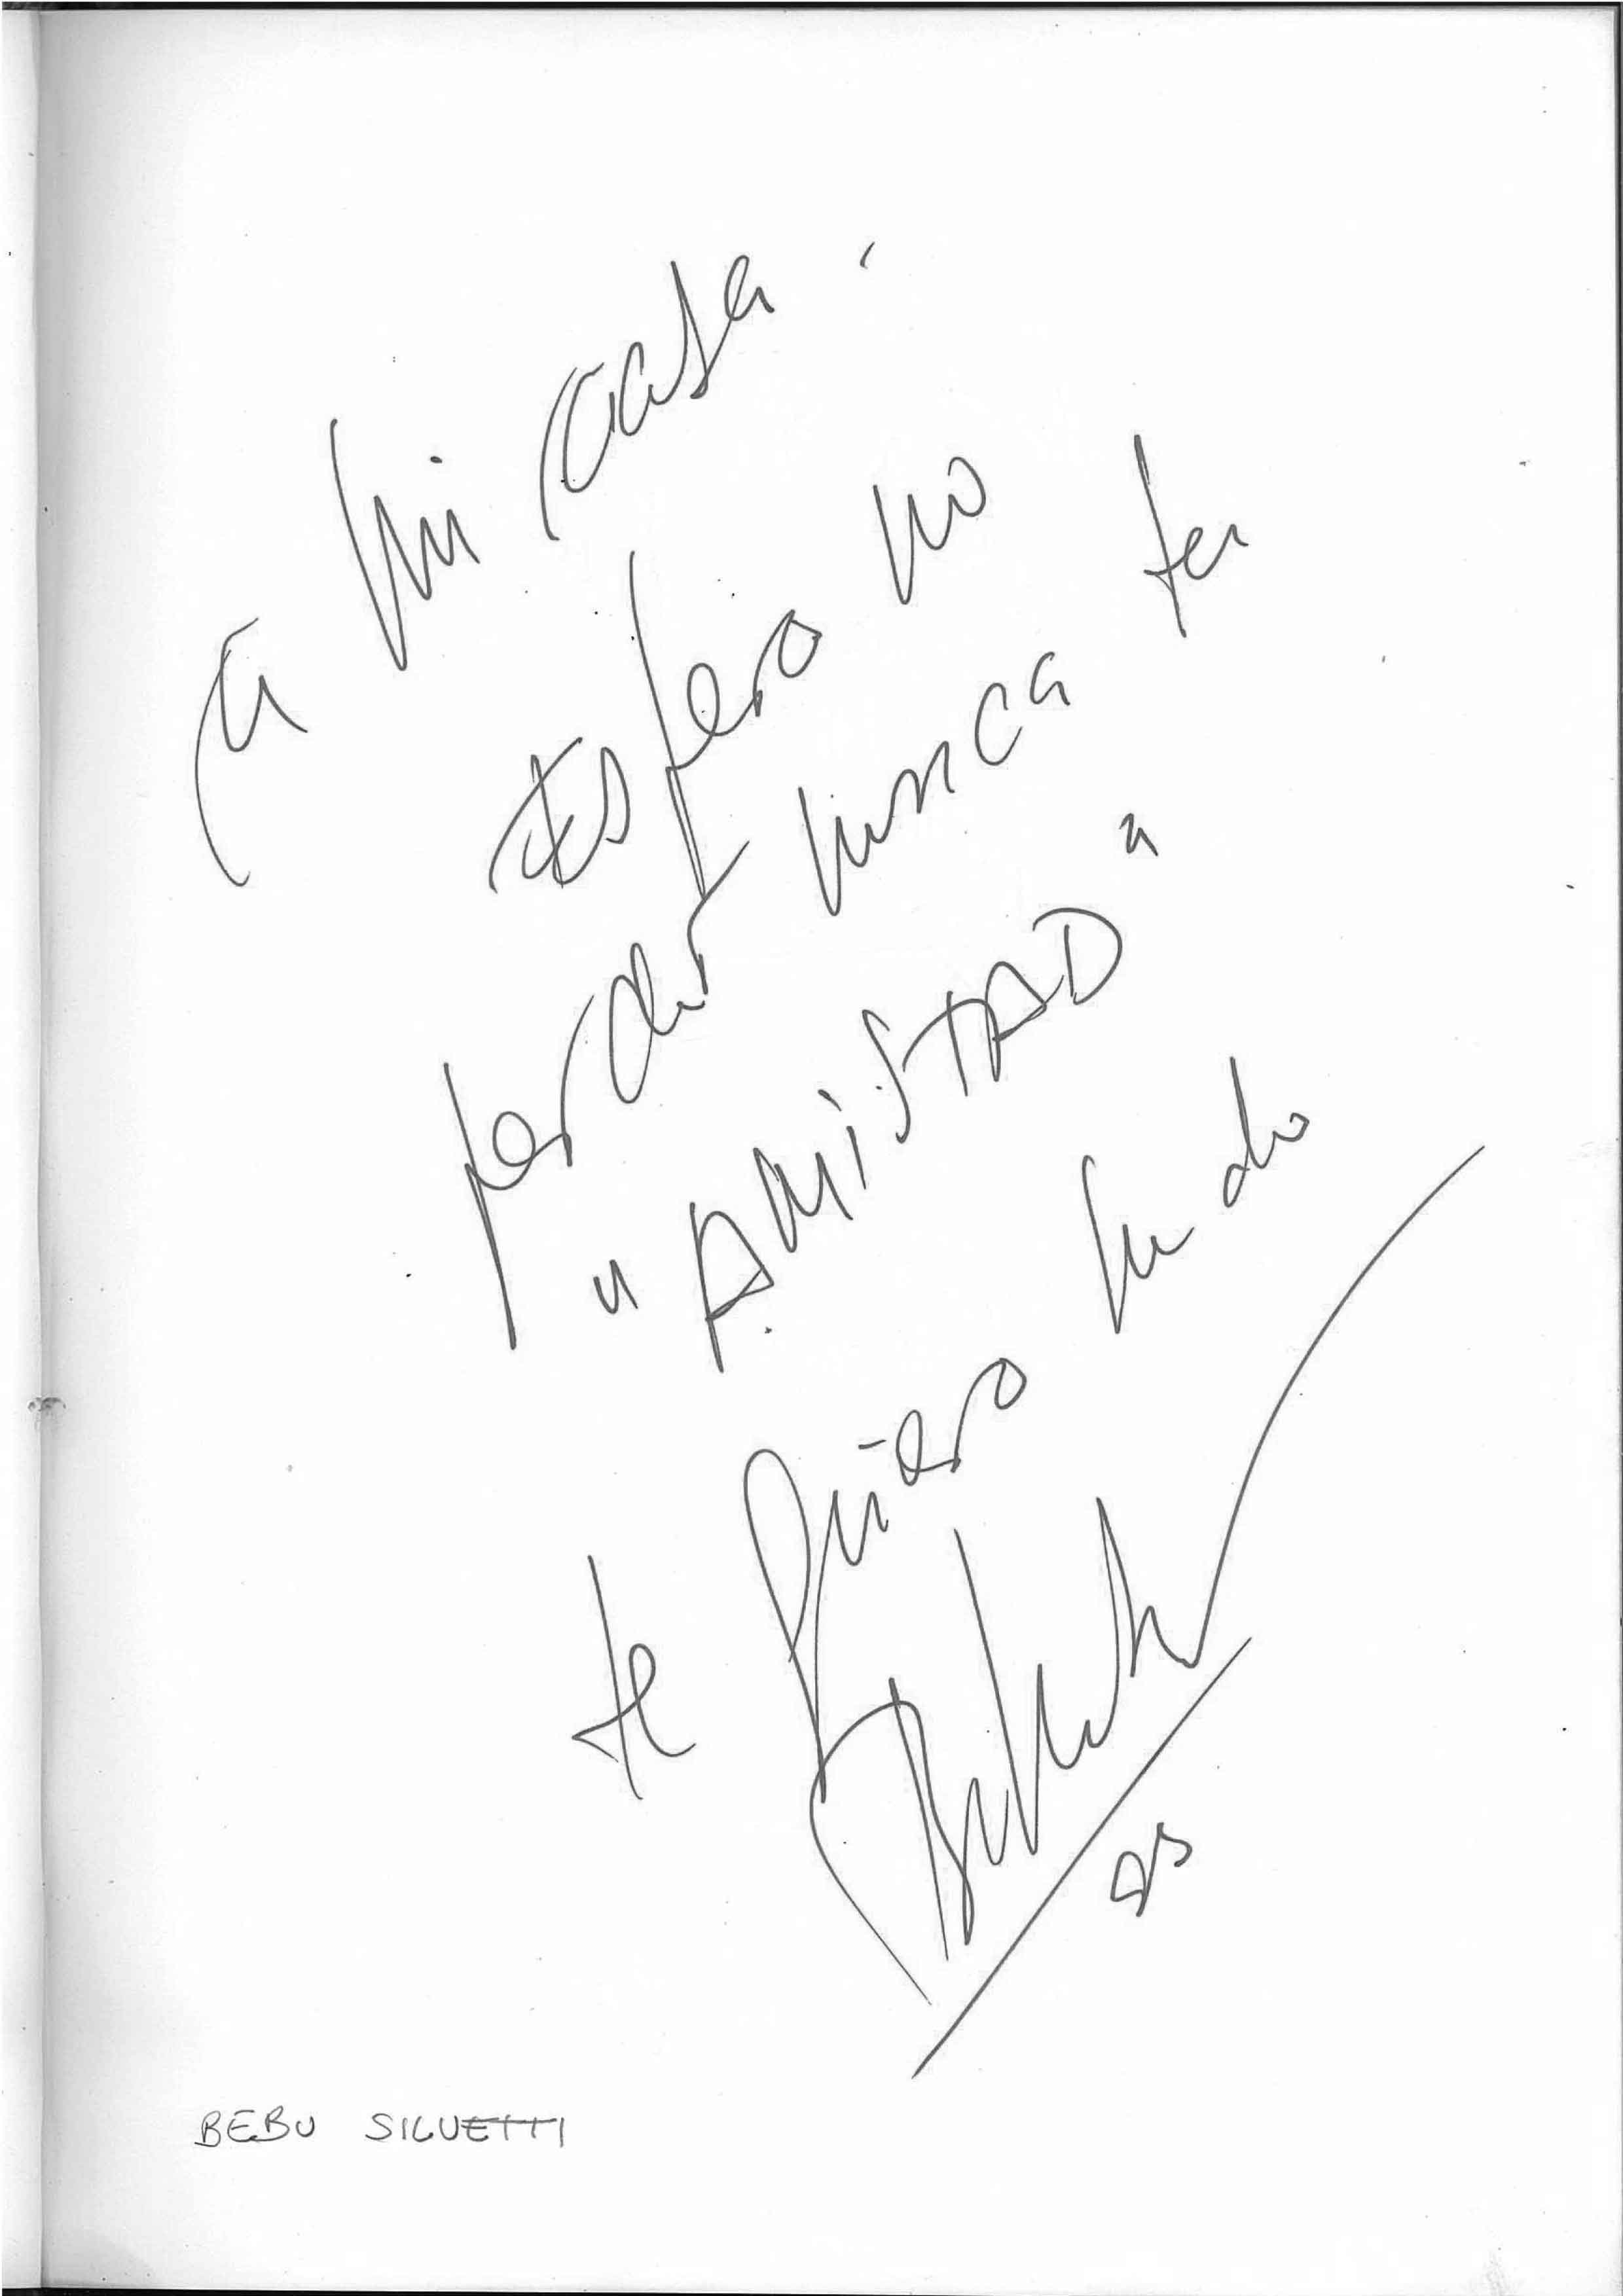 a mi casa.
Espero no
perder nunca tu
"AMISTAD"
te quiero mucho
Bebu
BEBU SILVETTI